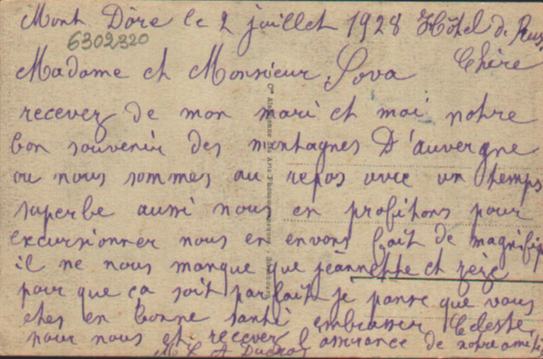 Mont Dore le 2 juillet 1928 Hôtel de Rus
6302320
Madame et Monsieur Sova Chère
recevez de mon mari et moi notre
bon souvenir des montagnes D'auvergne
ou nous sommes au repos avec un temps
superbe aussi nous en profitons pour
excursionner nous en avons fait de magnifiq
il ne nous manque que jeannette et
pour que ça soit parfait je pense que vous
etes en bonne santé embrasser Celeste
pour nous et recever l'assurance de notre amitié
M